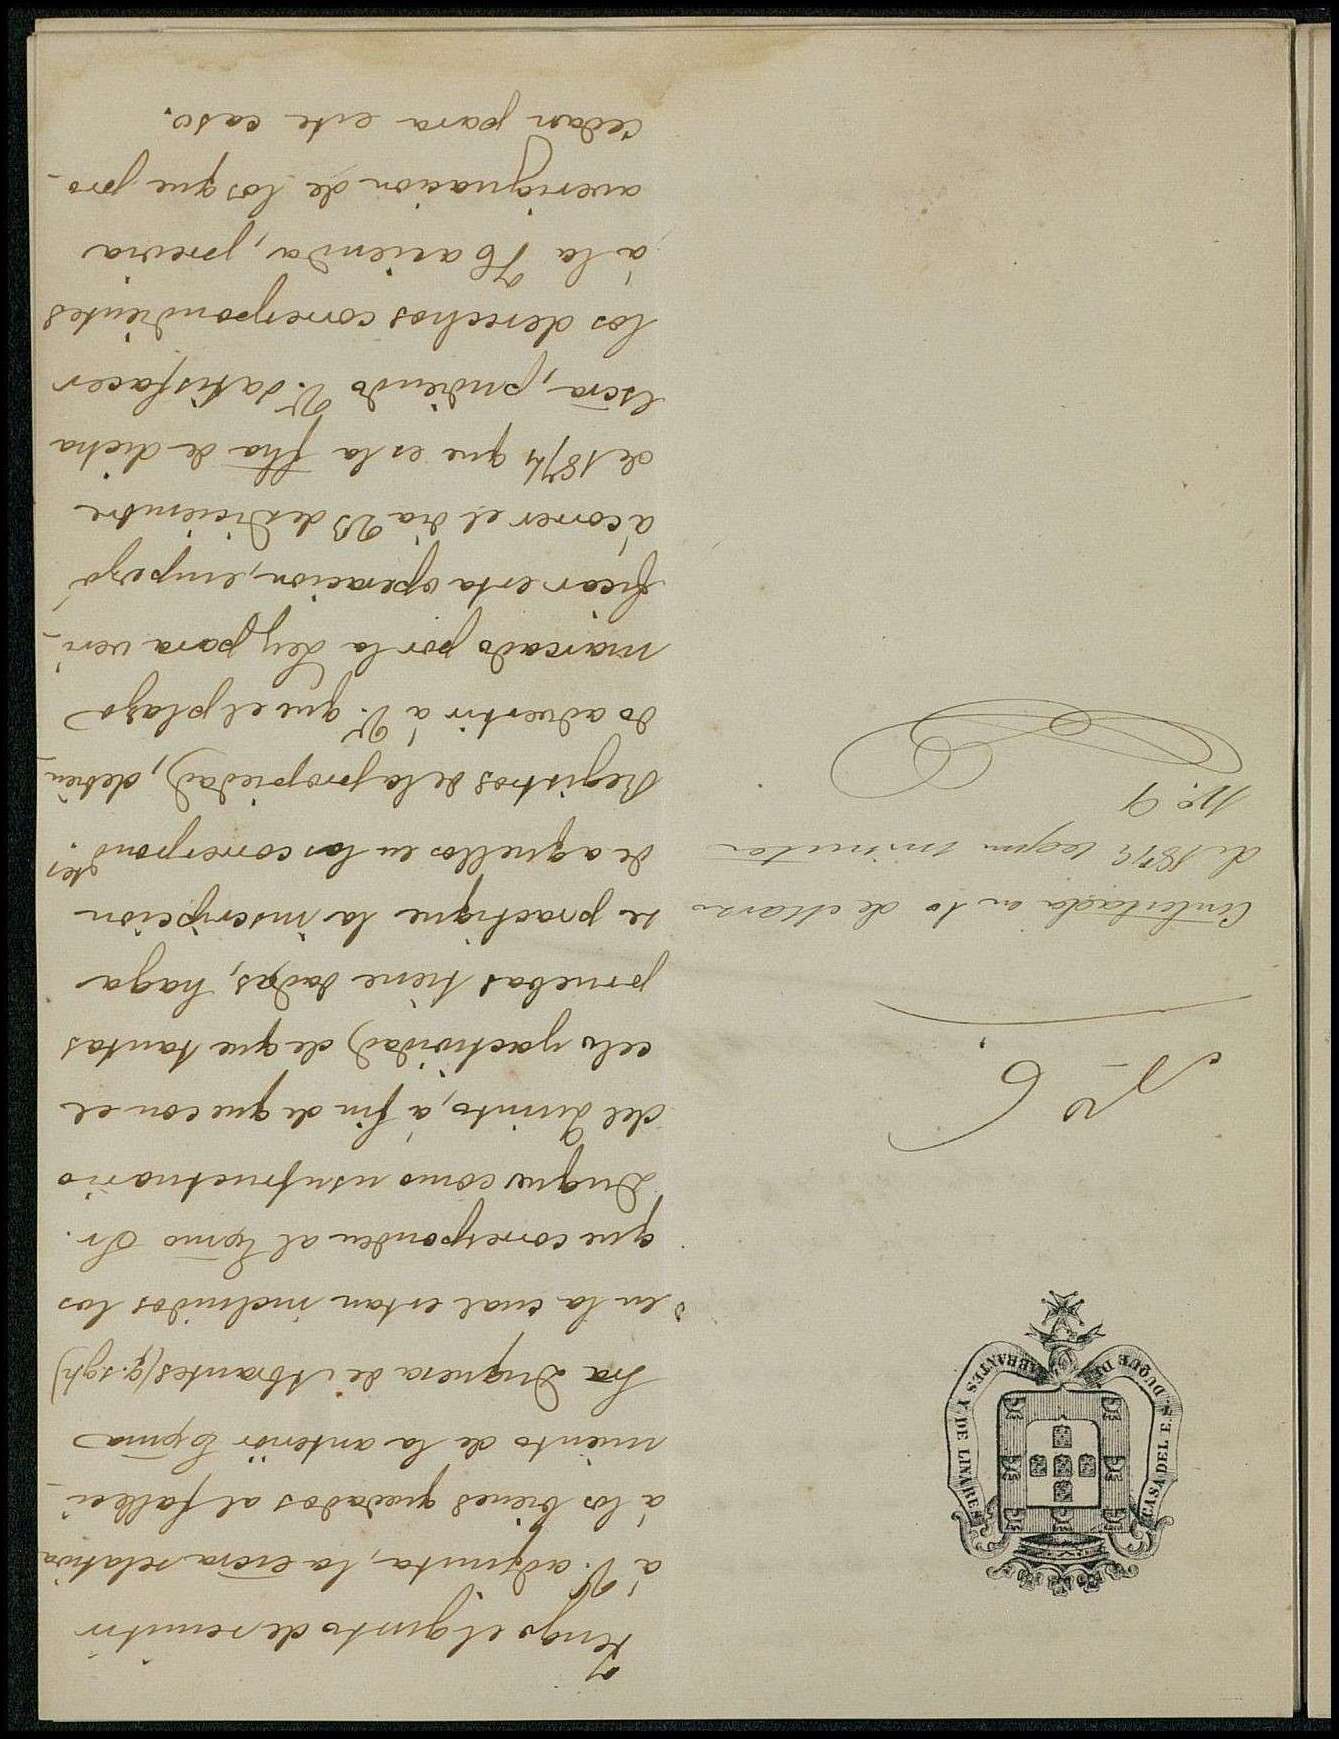 CASA DEL E. S. DUQUE DE ABRANTES Y DE LINARES
Nº 6.
Contestada en 10 de Marzo
de 1875 segun minuta
nº. 9
Tengo el gusto de remitir
á V. adjunta, la escra relativa
á los bienes quedados al falleci-
miento de la anterior Excma
Sra Duquesa de Abrantes (q. s g h)
en la cual estan incluidos los
que corresponden al Excmo Sr.
Duque como usufructuario
del Quinto, á fin de que con el
celo y actividad de que tantas
pruebas tiene dadas, haga
se practique la inscripcion
de aquellos en los correspond.tes
Registros de la propiedad, debien-
do advertir á V. que el plazo
marcado por la Ley para veri-
ficar esta operacion, empezó
á correr el dia 23 de Diciembre
de 1874 que es la fha de dicha
escra, pudiendo V. satisfacer
los derechos correspondientes
á la Hacienda, previa
averiguacion de los que pro-
cedan para este caso.